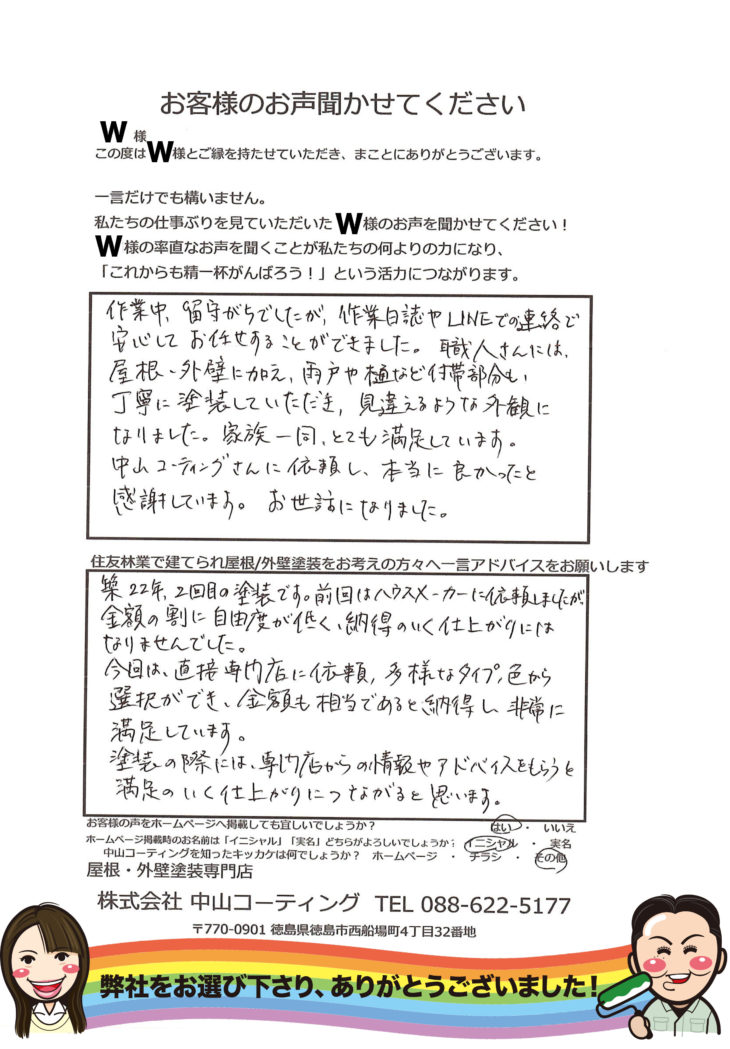 お客様のお声聞かせてください
W 様
この度はW様とご縁を持たせていただき、まことにありがとうございます。
一言だけでも構いません。
私たちの仕事ぶりを見ていただいたW様のお声を聞かせてください！
W様の率直なお声を聞くことが私たちの何よりの力になり、
「これからも精一杯がんばろう！」という活力につながります。
作業中、留守がちでしたが、作業日誌やLINEでの連絡で
安心してお任せすることができました。職人さんには、
屋根、外壁に加え、雨戸や樋など付帯部分も、
丁寧に塗装していただき、見違えるような外観に
なりました。家族一同、とても満足しています。
中山コーティングさんに依頼し、本当に良かったと
感謝しています。お世話になりました。
住友林業で建てられ屋根/外壁塗装をお考えの方々へ一言アドバイスをお願いします
築22年、2回目の塗装です。前回はハウスメーカーに依頼しましたが
金額の割に自由度が低く、納得のいく仕上がりには
なりませんでした。
今回は、直接専門店に依頼、多様なタイプ、色から
選択ができ、金額も相当であると納得し、非常に
満足しています。
塗装の際には、専門店からの情報やアドバイスをもらうと
満足のいく仕上がりにつながると思います。
お客様の声をホームページへ掲載しても宜しいでしょうか？ はい ・ いいえ
ホームページ掲載時のお名前は「イニシャル」「実名」どちらがよろしいでしょうか？ イニシャル ・ 実名
中山コーティングを知ったキッカケは何でしょうか？ ホームページ ・ チラシ ・ その他
屋根・外壁塗装専門店
株式会社 中山コーティング TEL 088-622-5177
〒770-0901 徳島県徳島市西船場町4丁目32番地
弊社をお選び下さり、ありがとうございました！